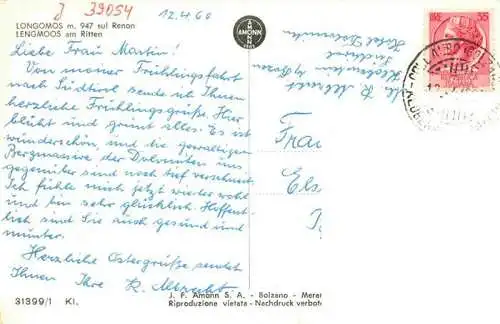 J 39054
12.4.60
LONGOMOS m. 947 sul Renon
LENGMOOS am Ritten
AMONN
Liebe Frau Martin!
Von meiner Frühlingsfahrt
nach Südtirol sende ich Ihnen
herzliche Frühlingsgrüße. Hier
blüht und grünt alles. Es ist
wunderschön, und die gewaltigen
Bergmassive der Dolomiten uns
gegenüber sind noch tief verschneit.
Ich fühle mich jetzt wieder wohl
und bin sehr glücklich. Hoffent-
lich sind Sie auch gesund und
munter.
Herzliche Ostergrüße sendet
Ihnen Ihre K. Albrecht
K. Albrecht
Klobenstein b/ Bozen
Südtirol
Hotel
Frau
Els
31399/1 Kl.
J. F. Amonn S. A. - Bolzano - Meran
Riproduzione vietata - Nachdruck verbot